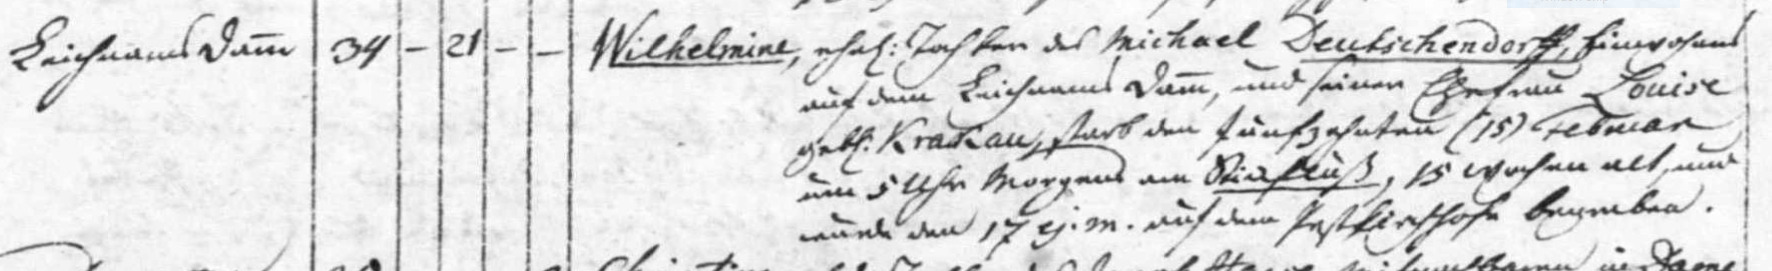 Leichnams Dam̅ 34 - 21 - - Wilhelmine, ehel: Tochter des Michael Deutschendorff, Einwohners
auf dem Leichnams Dam̅, und seiner Ehefrau Louise
geb: Krakau, starb den funfzehnten (15) Februar
um 5 Uhr Morgens am Stickfluß, 15 Wochen alt, und
wurde den 17 ej. m. auf dem Pestkirchhofe begraben.